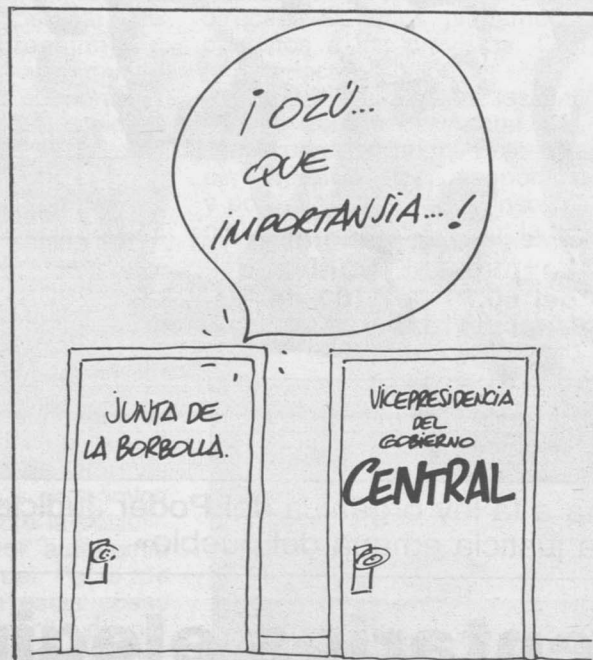 ¡OZÚ...
QUE
IMPORTANSIA...!
JUNTA DE
LA BORBOLLA.
VICEPRESIDENCIA
DEL
GOBIERNO
CENTRAL